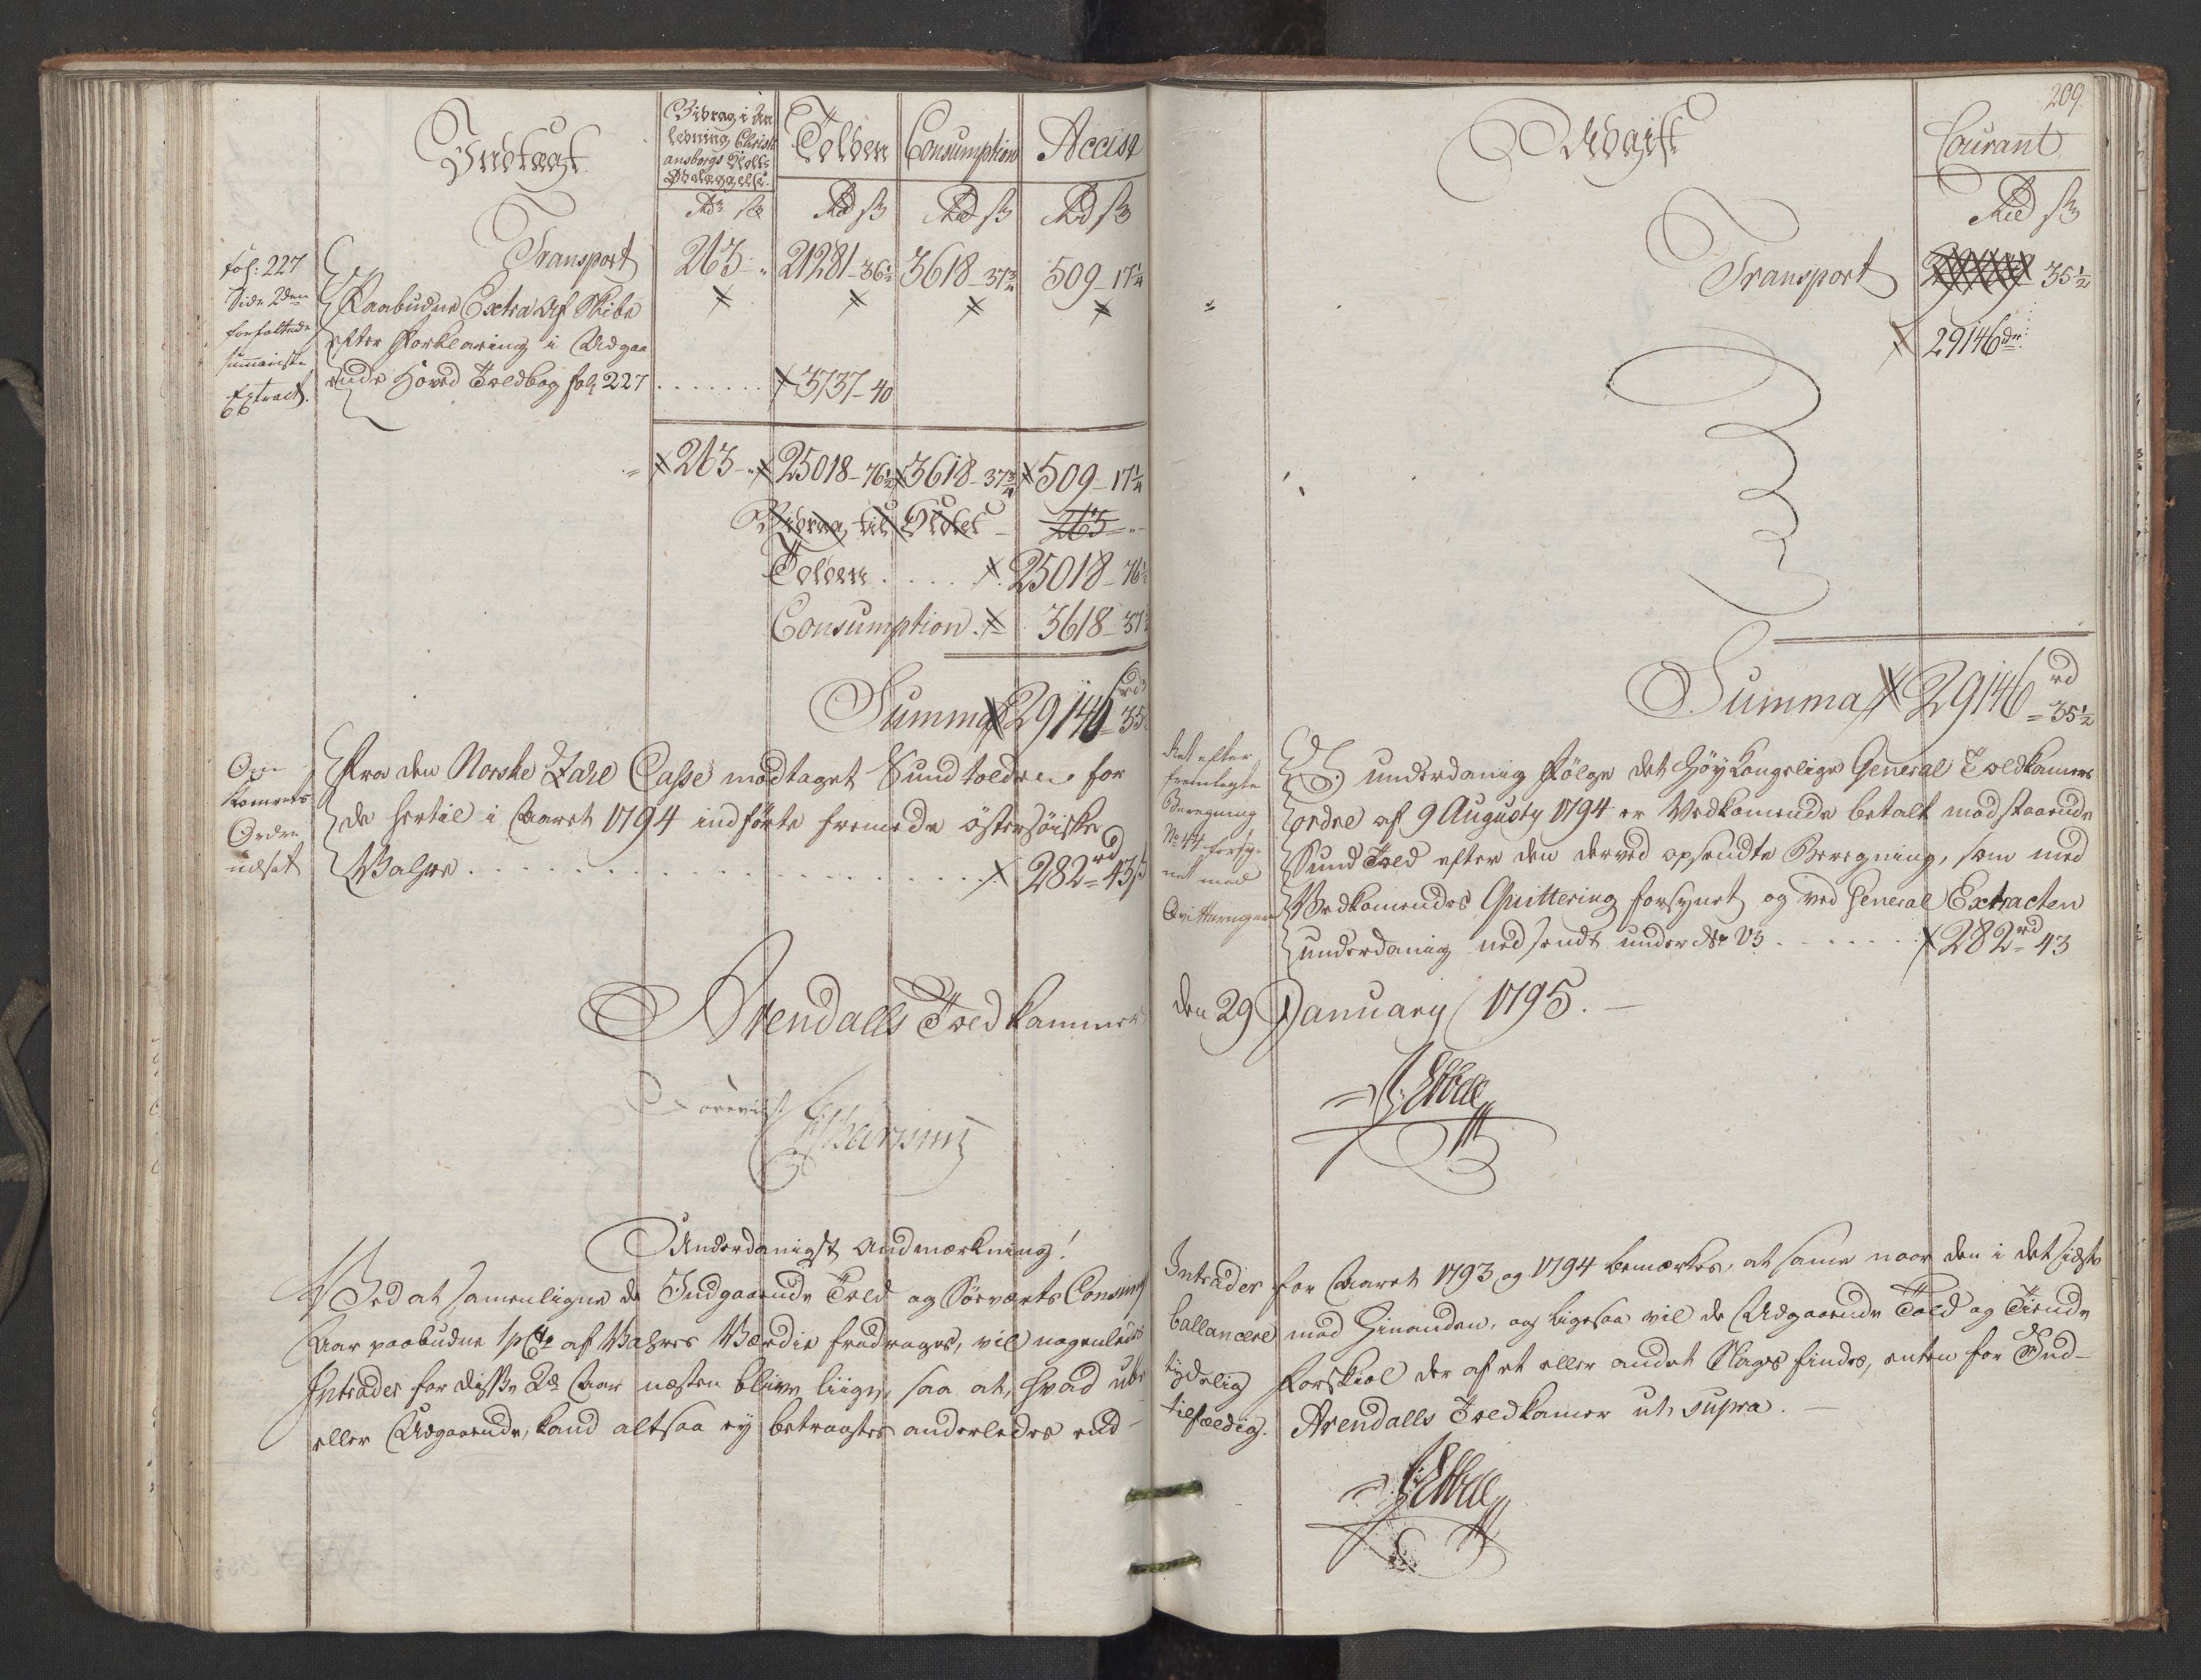 Indtægt
Bidrag i An
ledning Christi
ansborgs Slotts
Ødelæggelse.
Tolden
Consumption
Accise
Rdr sk
Rd ß
Rd ß
Rd ß
Transport
263 - "
21281 - 36½
3618 - 37¾
509 - 17¼
fol: 227
Side 2den
forfattede
summariske
Extract.
Paabudne Extra Af Skibe
efter Forklaring i Udgaa
ende Hoved Toldbog fol 227 . . . . . . . 3737 - 40
263 - "
25018 - 76½
3618 - 37¾
509 - 17¼
Bidrag til Slottet - 263 - "
Tolden . . . . . 25018 - 76½
Consumption . 3618 - 37¾
Summa 29146rd 35½
Om
Kamrets
Ordre
udsat
Fra den Norske Zahl Casse modtaget Sundtolden for
de hertil i Aaret 1794 indførte fremede østersøiske
Vahre . . . . . . . . . . . . . . . . 282rd 43ß
Arendalls Toldkammer
Tharsing
Underdanigst Andmærkning!
Ved at samenligne de Indgaaende Told og Søeværts Consumpt
Aar paabudne 1 pCto af Vahres Værdie fradrages, vil nogenledes
Intrader for disse 2de Aar næsten blive liige, saa at, hvad
eller Udgaaende, kand altsaa ey betragtes anderledes end -
209.
Udgift
Courant
Rd ß
Transport 35½
29146 dr
Summa 29146rd 35½
Ret efter
fremlagte
Beregning
No 44 forsy-
net med
Qvitteringer
I underdanig Følge det Høy Kongelige General Toldkamers
ordre af 9 Augusty 1794 er Vedkomende betalt modstaaende
Sund Told efter den derved opsendte Beregning, som med
Vedkomendes Quittering forsynet og ved General Extracten
underdanig nedsendt under No V3 . . . . . . . 282rd 43
den 29 January 1795. -
Intrader for Aaret 1793 og 1794 bemærkes, at same naar den i det sidste
ballancere mod Hinanden, og ligesaa vil de Udgaaende Told og Tiende
tydelig Forskiel der af et eller andet Slags findes, enten for Ind-
tilfældig. Arendalls Toldkamer ut supra. -